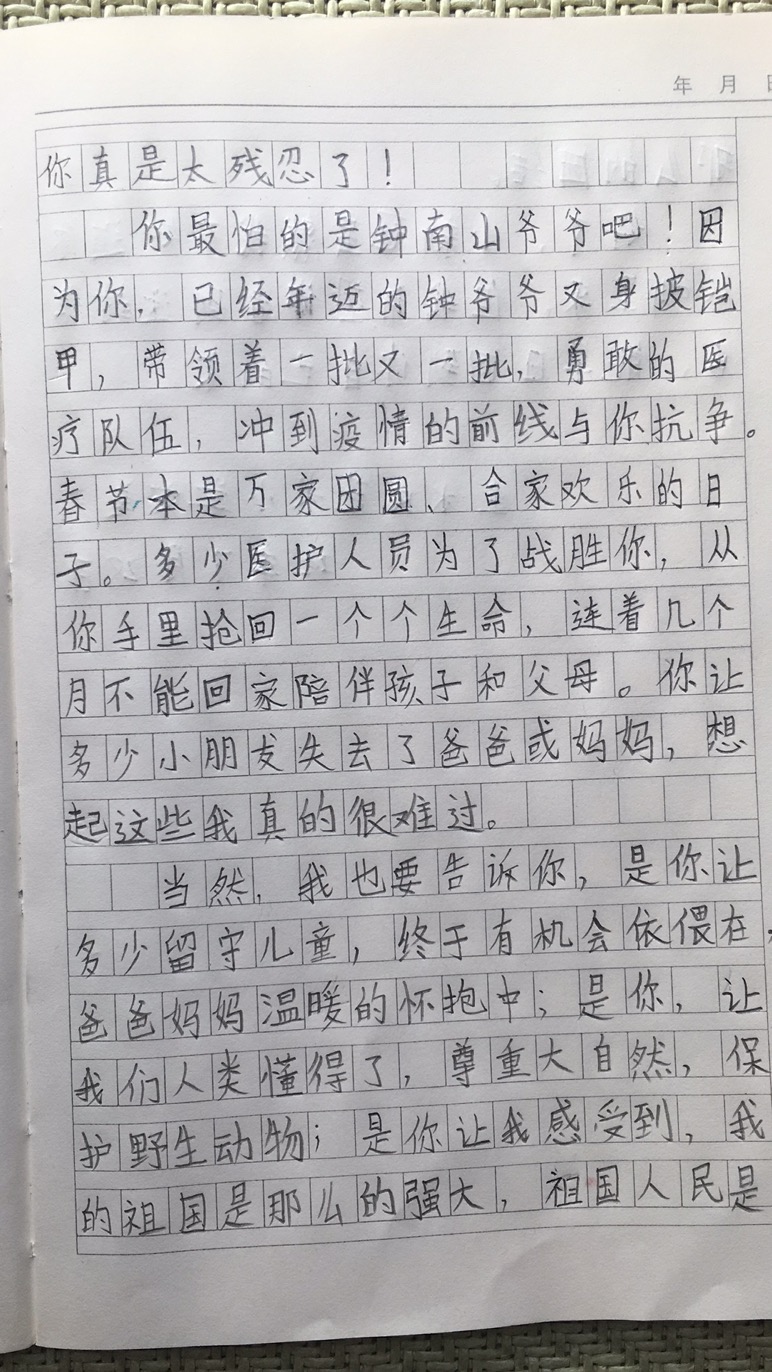 年 月 日
你真是太残忍了！
你最怕的是钟南山爷爷吧！因
为你，已经年迈的钟爷爷又身披铠
甲，带领着一批又一批，勇敢的医
疗队伍，冲到疫情的前线与你抗争。
春节本是万家团圆、合家欢乐的日
子。多少医护人员为了战胜你，从
你手里抢回一个个生命，连着几个
月不能回家陪伴孩子和父母。你让
多少小朋友失去了爸爸或妈妈，想
起这些我真的很难过。
当然，我也要告诉你，是你让
多少留守儿童，终于有机会依偎在，
爸爸妈妈温暖的怀抱中；是你，让
我们人类懂得了，尊重大自然，保
护野生动物；是你让我感受到，我
的祖国是那么的强大，祖国人民是